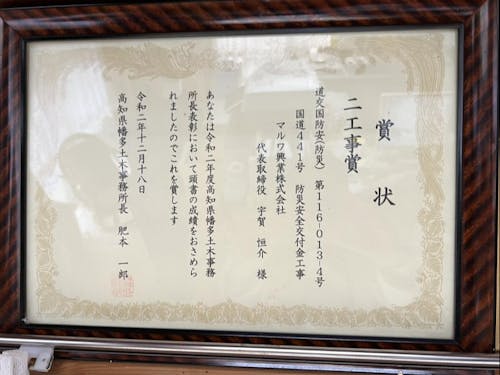 賞状
二工事賞
道交国防安(防災) 第116-013-4号
国道441号 防災安全交付金工事
マルワ興業株式会社
代表取締役 宇賀 恒介 様
あなたは令和二年度高知県幡多土木事務
所長表彰において頭書の成績をおさめら
れましたのでこれを賞します
令和二年十二月十八日
高知県幡多土木事務所長 肥本 一郎